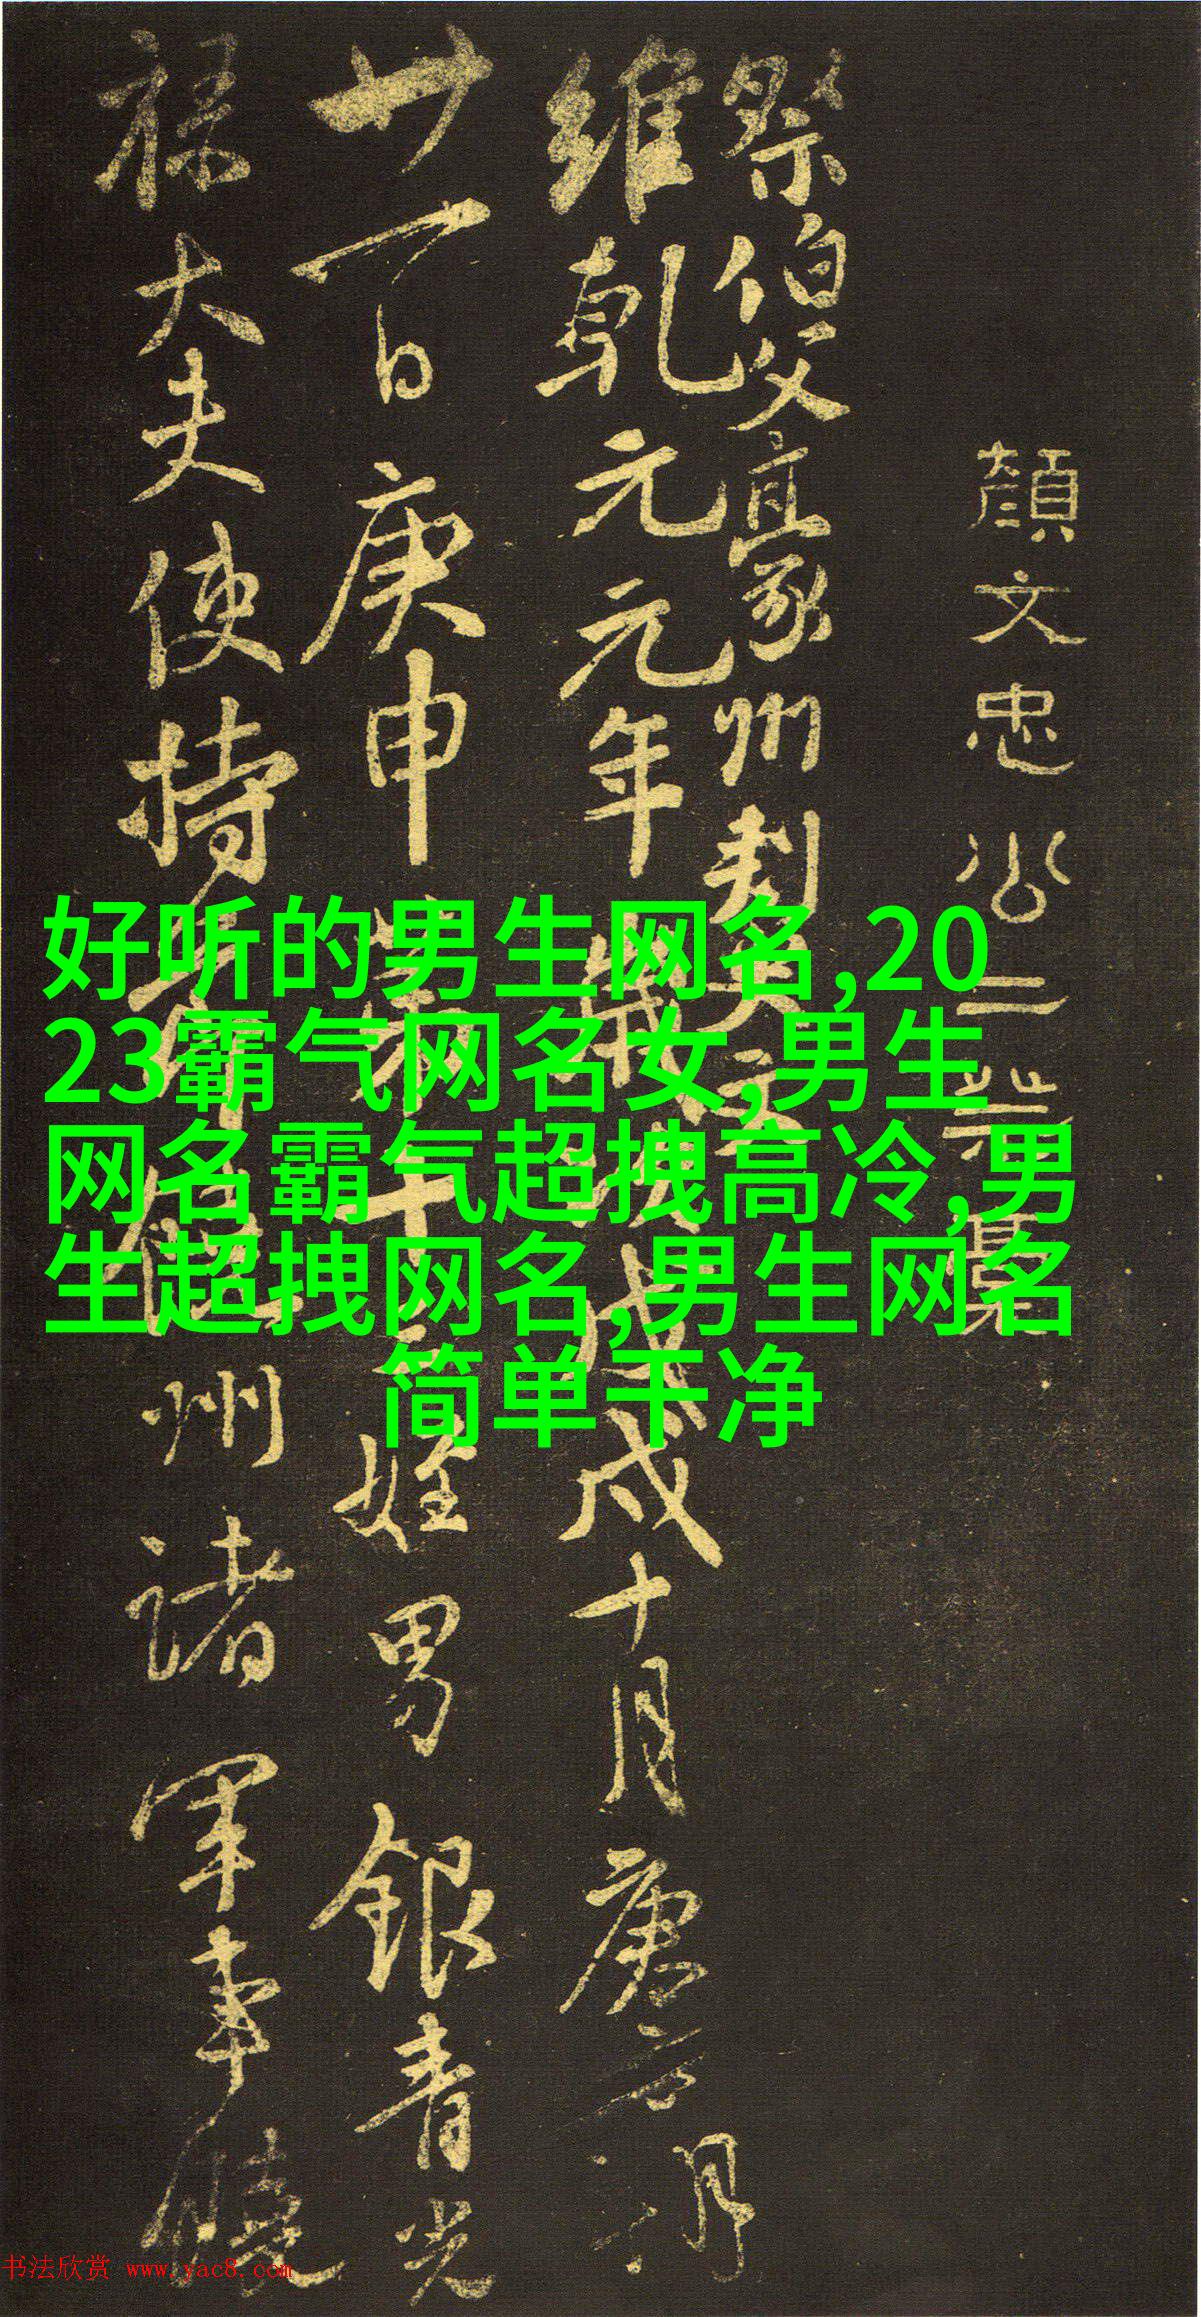 顏文忠公二祭
祭伯父豪州刺史文
維乾元元年歲次戊戌十月庚寅朔
廿一日庚申第十三姪男銀青光
祿大夫使持節饒州諸軍事饒
好听的男生网名,20
23霸气网名女,男生
网名霸气超拽高冷,男
生超拽网名,男生网名
简单干净
书法欣赏 www.yac8.com